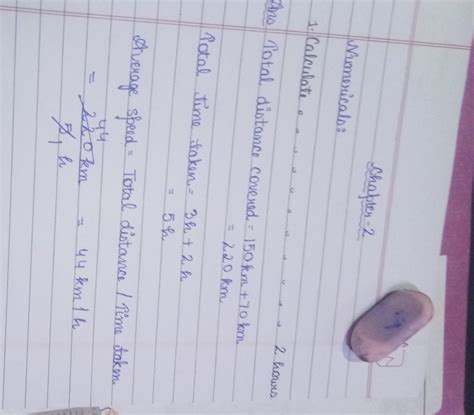 Chapter-2
Numericals:
1. Calculate . . . . . . . . 2 hours
Ans Total distance covered = 150km + 70km
= 220km
Total time taken = 3h + 2h
= 5h
Average speed = Total distance / Time taken
44
= 220km = 44km/h
5, h